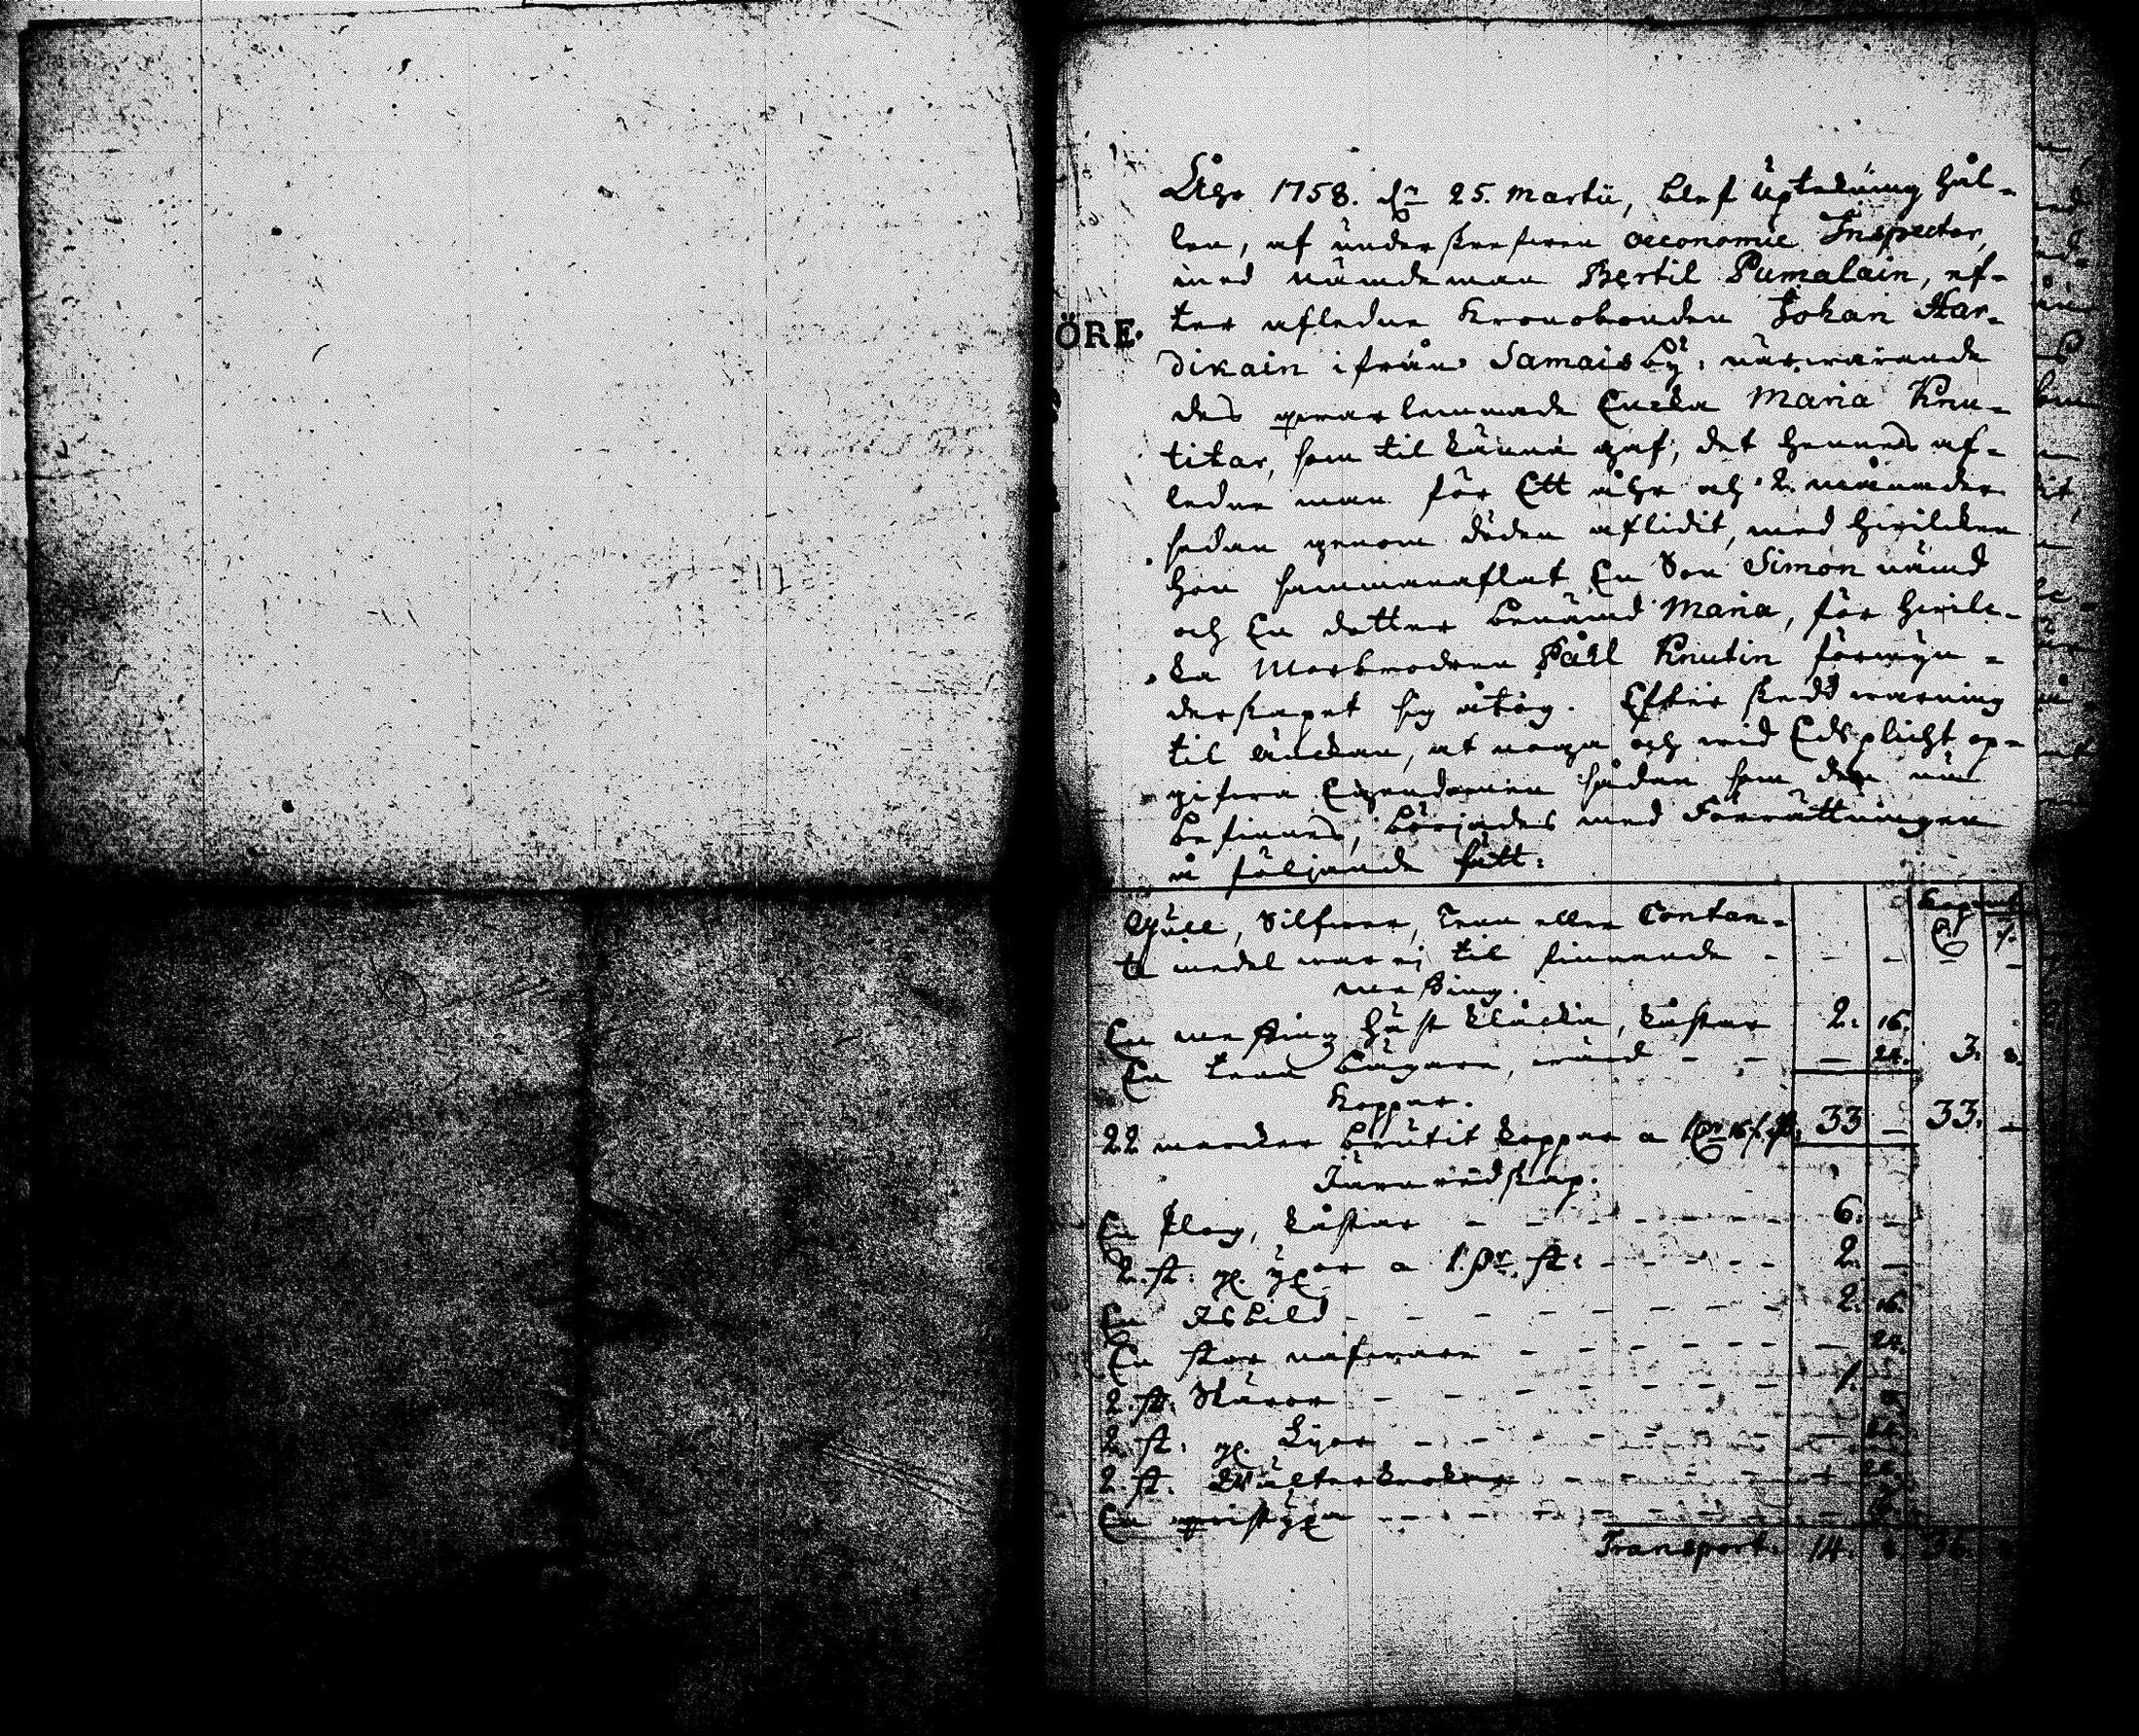 ÖRE.
Åhr 1758. dn 25. Martii, blef Uptekning hål-
len, af underskrefwen oeconomie Inspector,
med nämdeman Bertil Pumalain, ef-
ter afledne Kronobonden Johan Har-
dikain ifrån Samais by: närwarande
des qwarlemnade Encka Maria Knu-
titar, som til känna gaf, det hennes af-
ledne man för Ett åhr och 2 månader
sedan genom döden aflidit, med hwilcken
hon sammanaflat En Son Simon nämd
och En dotter benämd Maria, för hwil-
ka Morbrodren Påhl Knutin förmyn-
derskapet sig åtog. Efter skedd warning
til änckan, at noga och wid Edsplicht op-
gifwa Egendomen sådan som den nu
befinnes, börjades med Förrättningen
å följande sätt:
Gull, Silfwer, Tenn eller Contan-
te medel war ej til finnande - - - - -
Messing.
En messing häst klåcka, kåstar 2. 16.
En tenn bägare, wärd - - - 24. 3. 8.
Koppar.
22 marcker brutit koppar a 33 - 33. -
Järnredskap.
En plog, kåstar - - - - - - 6. -
2. st: gl. yxor a 1. st: - - - - - 2. -
En Isbild - - - - - - - - 2. 16.
En stor nafware - - - - - - 24.
2. st. Skäror - - - - - - - 1.
2 st. gl. Lijar - - - - - -
2. st.
En - - - - - -
Transport. 14. 8. 36. 8.